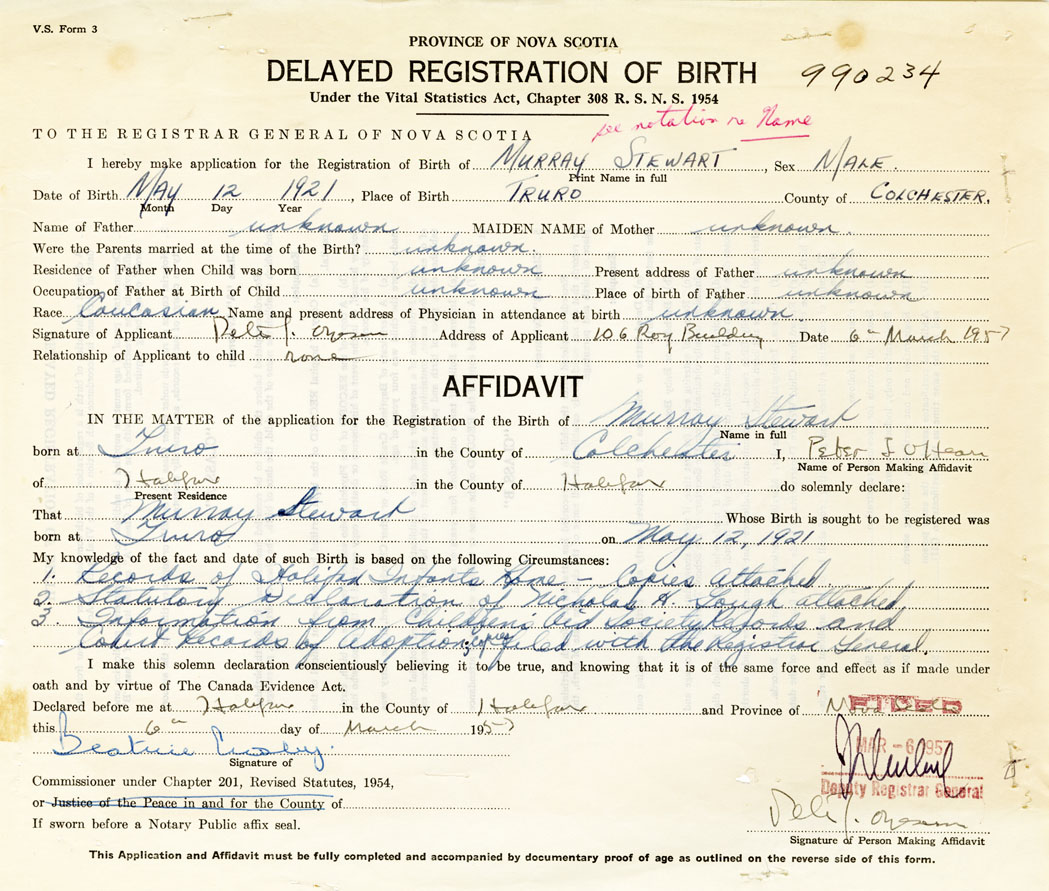 V.S. Form 3
PROVINCE OF NOVA SCOTIA
DELAYED REGISTRATION OF BIRTH 990234
Under the Vital Statistics Act, Chapter 308 R. S. N. S. 1954
see notation re Name
TO THE REGISTRAR GENERAL OF NOVA SCOTIA
I hereby make application for the Registration of Birth of MURRAY STEWART, Sex MALE.
Print Name in full
Date of Birth MAY 12 1921, Place of Birth TRURO County of COLCHESTER.
Month Day Year
Name of Father unknown MAIDEN NAME of Mother unknown.
Were the Parents married at the time of the Birth? unknown.
Residence of Father when Child was born unknown Present address of Father unknown
Occupation of Father at Birth of Child unknown Place of birth of Father unknown
Race Caucasian Name and present address of Physician in attendance at birth unknown.
Signature of Applicant Peter J. Address of Applicant 106 Roy Building Date 6th March 1957
Relationship of Applicant to child none
AFFIDAVIT
IN THE MATTER of the application for the Registration of the Birth of Murray Stewart
Name in full
born at Truro in the County of Colchester I, Peter J O'Hearn
Name of Person Making Affidavit
of Halifax in the County of Halifax do solemnly declare:
Present Residence
That Murray Stewart Whose Birth is sought to be registered was
born at Truro on May 12, 1921
My knowledge of the fact and date of such Birth is based on the following Circumstances:
1. Records of Halifax Infants Home - Copies attached.
2. Statutory Declaration of Nicholas H. attached,
3. Information from Childrens Aid Society Records and
Court Records of adoption; copies filed with the Registrar General.
I make this solemn declaration conscientiously believing it to be true, and knowing that it is of the same force and effect as if made under
oath and by virtue of The Canada Evidence Act.
Declared before me at Halifax in the County of Halifax and Province of Nova Scotia
FILED
this 6th day of March 1957
MAR - 6 1957
Beatrice Crosby.
Signature of
Commissioner under Chapter 201, Revised Statutes, 1954,
Deputy Registrar General
or Justice of the Peace in and for the County of
If sworn before a Notary Public affix seal.
Peter J.
Signature of Person Making Affidavit
This Application and Affidavit must be fully completed and accompanied by documentary proof of age as outlined on the reverse side of this form.